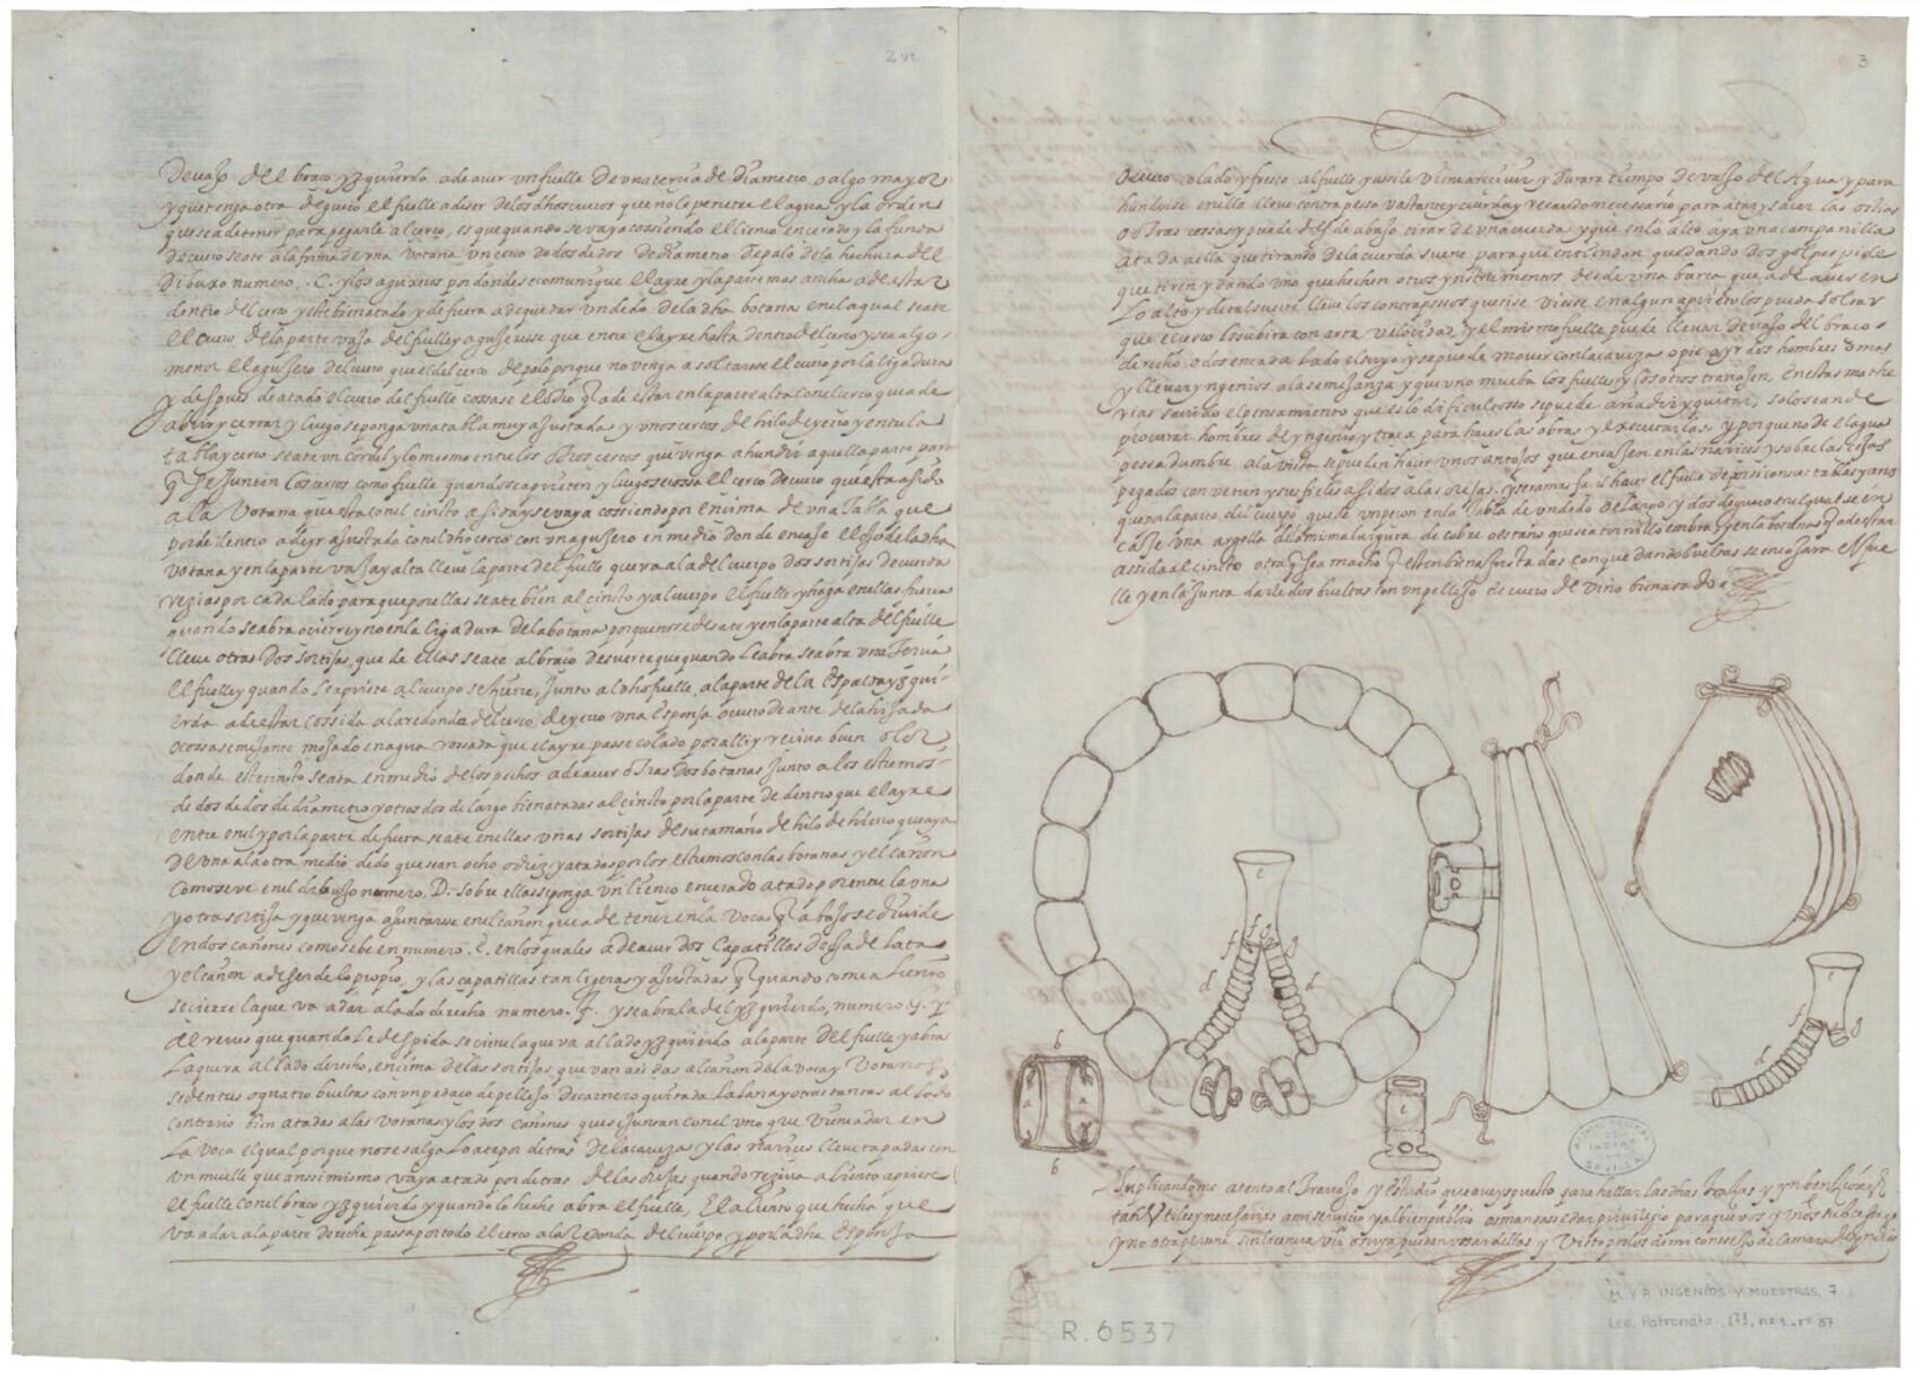 2 vº
Devajo del braço yzquierdo a de aver un fuelle de una tercia de diametro o algo mayor
y que tenga otra de gueco el fuelle a de ser de los dhos cueros que no le penetre el agua y la orden
que se a de tener para pegarle al cerco, es que quando se vaya cossiendo el lienço encerado y la funda
de cuero se ate a la forma de una votana un coxo de dos dedos de diametro de palo de la hechura del
dibuxo numero, .C. y los agujeros por donde se comunique el ayre y la parte mas ancha a de estar
dentro del cerco y este bien atado y de fuera a de quedar un dedo de la dha botana en el qual se ate
el cuero de la parte vaja del fuelle y agujerese que entre el ayre hasta dentro del cerco y sea algo
menor el agujero del cuero que el del cerco de palo porque no venga a soltarse el cuero por la ligadura
y despues de atado el cuero del fuelle cossase el dho q a de estar en la parte alta con el cerco que a de
abrir y cerrar y luego se ponga una tabla muy ajustada y unos cercos de hilo de yerro y en la
tabla y cerco se ate un cordel y lo mismo en los otros cercos que venga a hundir aquella parte para
q se junten los cercos como fuelle quando se aprieten y luego se cossa el cerco de cuero que esta asido
a la votana que esta con el cinto asida y se vaya cossiendo por encima de una tabla que
por de dentro a de yr ajustada con el dho cerco con un agujero en medio donde encaje el ojo de la dha
votana y en la parte vaja y alta lleve la parte del fuelle que va a la del cuerpo dos sortijas de cuerda
rezias por cada lado para que por ellas se ate bien al cinto y al cuerpo el fuelle y haga en ellas fuerça
quando se abra o cierre y no en la ligadura de la botana porque no se desate y en la parte alta del fuelle
lleve otras dos sortijas, que de ellas se ate al braço de suerte que quando le abra se abra una tercia
el fuelle y quando le apriete al cuerpo se cierre, junto al dho fuelle, a la parte de la espalda yzqui-
erda a de estar cossida a la redonda del cerco, de yerro una esponja o cuero de ante de la hijada
o cossa semejante mojado en agua rossada que el ayre passe colado por alli y reciva buen olor
donde este cinto se ata en medio de los pechos a de aver otras dos botanas junto a los estremos
de dos dedos de diametro y otros dos de largo bien atadas al cinto por la parte de dentro que el ayre
entre en el y por la parte de fuera se ate en ellas unas sortijas de su tamaño de hilo de hierro que aya
de una a la otra medio dedo que sean ocho o diez y atadas por los estremos con las botanas y el cañon
como se ve en el dibujo numero, D. sobre ellas se ponga un lienço encerado atado por entre la una
y otra sortija y que venga a juntarse en el cañon que a de tener en la voca q abajo se divide
en dos cañones como se be en numero. E. en los quales a de aver dos çapatillas de oja de lata
y el cañon a de ser de lo propio, y las çapatillas tan ligeras y ajustadas q quando tome aliento
se cierre la que va a dar al lado derecho numero. F. y se abra la del yzquierdo, numero G. y
al reves que quando le despida se cierre la que va al lado yzquierdo a la parte del fuelle y abra
la que va al lado derecho, encima de las sortijas que van asidas al cañon de la voca y votanas
se den tres o quatro bueltas con un pedaço de pellejo de carnero quitada la lana y otras tantas al lado
contrario bien atadas a las votanas y los dos cañones que se juntan con el uno que viene a dar en
la voca el qual porque no se salga lo ate por detras de la caveza y las narices lleve tapadas con
un muelle que anssimismo vaya atado por detras de las orejas quando reziva aliento apriete
el fuelle con el braço yzquierdo y quando lo heche abra el fuelle, el aliento que hecha que
va a dar a la parte derecha passa por todo el cerco a la redonda del cuerpo y por la dha esponja
3
o cuero colado y fresco al fuelle y assi le viene a rrecivir y durara tiempo devajo del agua y para
hundirse en ella lleve contrapesso vastante y cuerda y recaudo necessario para atar y sacar las ostias
o otras cossas y puede desde abajo tirar de una cuerda y que en lo alto aya una campanilla
atada a ella que tirando de la cuerda suene para que entiendan que dando dos golpes pide
que tiren y dando uno que hechen otros ynstrumentos desde una barca que a de aver en
lo alto y de tal suerte lleve los contrapesos que si se viesse en algun aprieto los pueda soltar
que el cerco le subira con arta velocidad, y el mismo fuelle puede llevar devajo del braço
derecho o dos en cada lado el suyo y se puede mover con la caveza o pie o yr dos hombres o mas
y llevar yngenios a la semejanza y que uno mueba los fuelles y los otros travajen, en estas mathe
rias savido el pensamiento que es lo dificultosso se puede añadir y quitar, solo se an de
procurar hombres de yngenio y traça para hacer las obras y executarlas, y porque no de el agua
pessadumbre a la vista se pueden hacer unos antojos que encajen en las narices y sobre las cejas
pegados con vetun y sus fieles asidos a las orejas. y sera mas facil hacer el fuelle de por si con sus tablas y aro
que por la parte del cuerpo quede un peçon en la tabla de un dedo de largo y dos de gueco en el qual se en
casse una argolla de la misma largura de cobre o estaño que sea tornillo embra y en la botana q a de estar
assida al cinto otra q sea macho q esten bien ajustadas con que dando bueltas se encajara el fue
lle y en la junta darle dos bueltas con un pellejo de cuero de vino bien atado
e
f f g g
d d
b
a a
b
c
e
f g
ARCHIVO GENERAL DE INDIAS SEVILLA
Suplicandome atento al travajo y estudio que aveys puesto para hallar las dhas traças y ynbenciones
tan utiles y necesarias a mi servicio y al bien publico os mandasse dar privilegio para que vos y vros subcesores
y no otra persona sin licencia vra o suya puedan ussar dellas y visto por los de mi consejo de camara de yndias
R. 6537
M. y P. INGENIOS Y MUESTRAS, 7
Leg. Patronato, 171, nº 1, rº 37